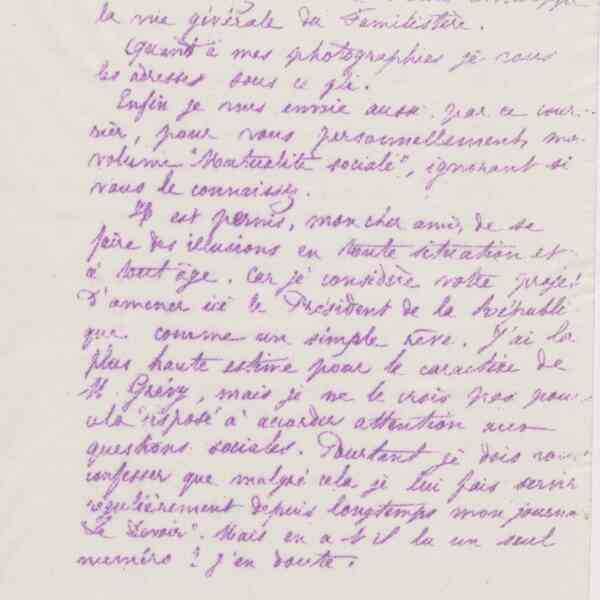 la vie générale du Familistère.
Quant à mes photographies je vous
les adresses sous ce pli.
Enfin je vous envoie aussi par ce cour-
rier, pour vous personnellement, mon
volume "Mutualité sociale", ignorant si
vous le connaissez.
Il est permis, mon cher ami, de se
faire des illusions en toute situation et
à tout âge. Car je considère votre projet
D'amener ici le Président de la Républi-
que comme un simple rêve. J'ai la
plus haute estime pour le caractère de
M. Grévy, mais je ne le crois pas pour
cela disposé à accorder attention aux
questions sociales. Pourtant je dois vous
confesser que malgré cela je lui fais servir
régulièrement depuis longtemps mon journal
Le Devoir". Mais en a-t-il lu un seul
numéro ? J'en doute.